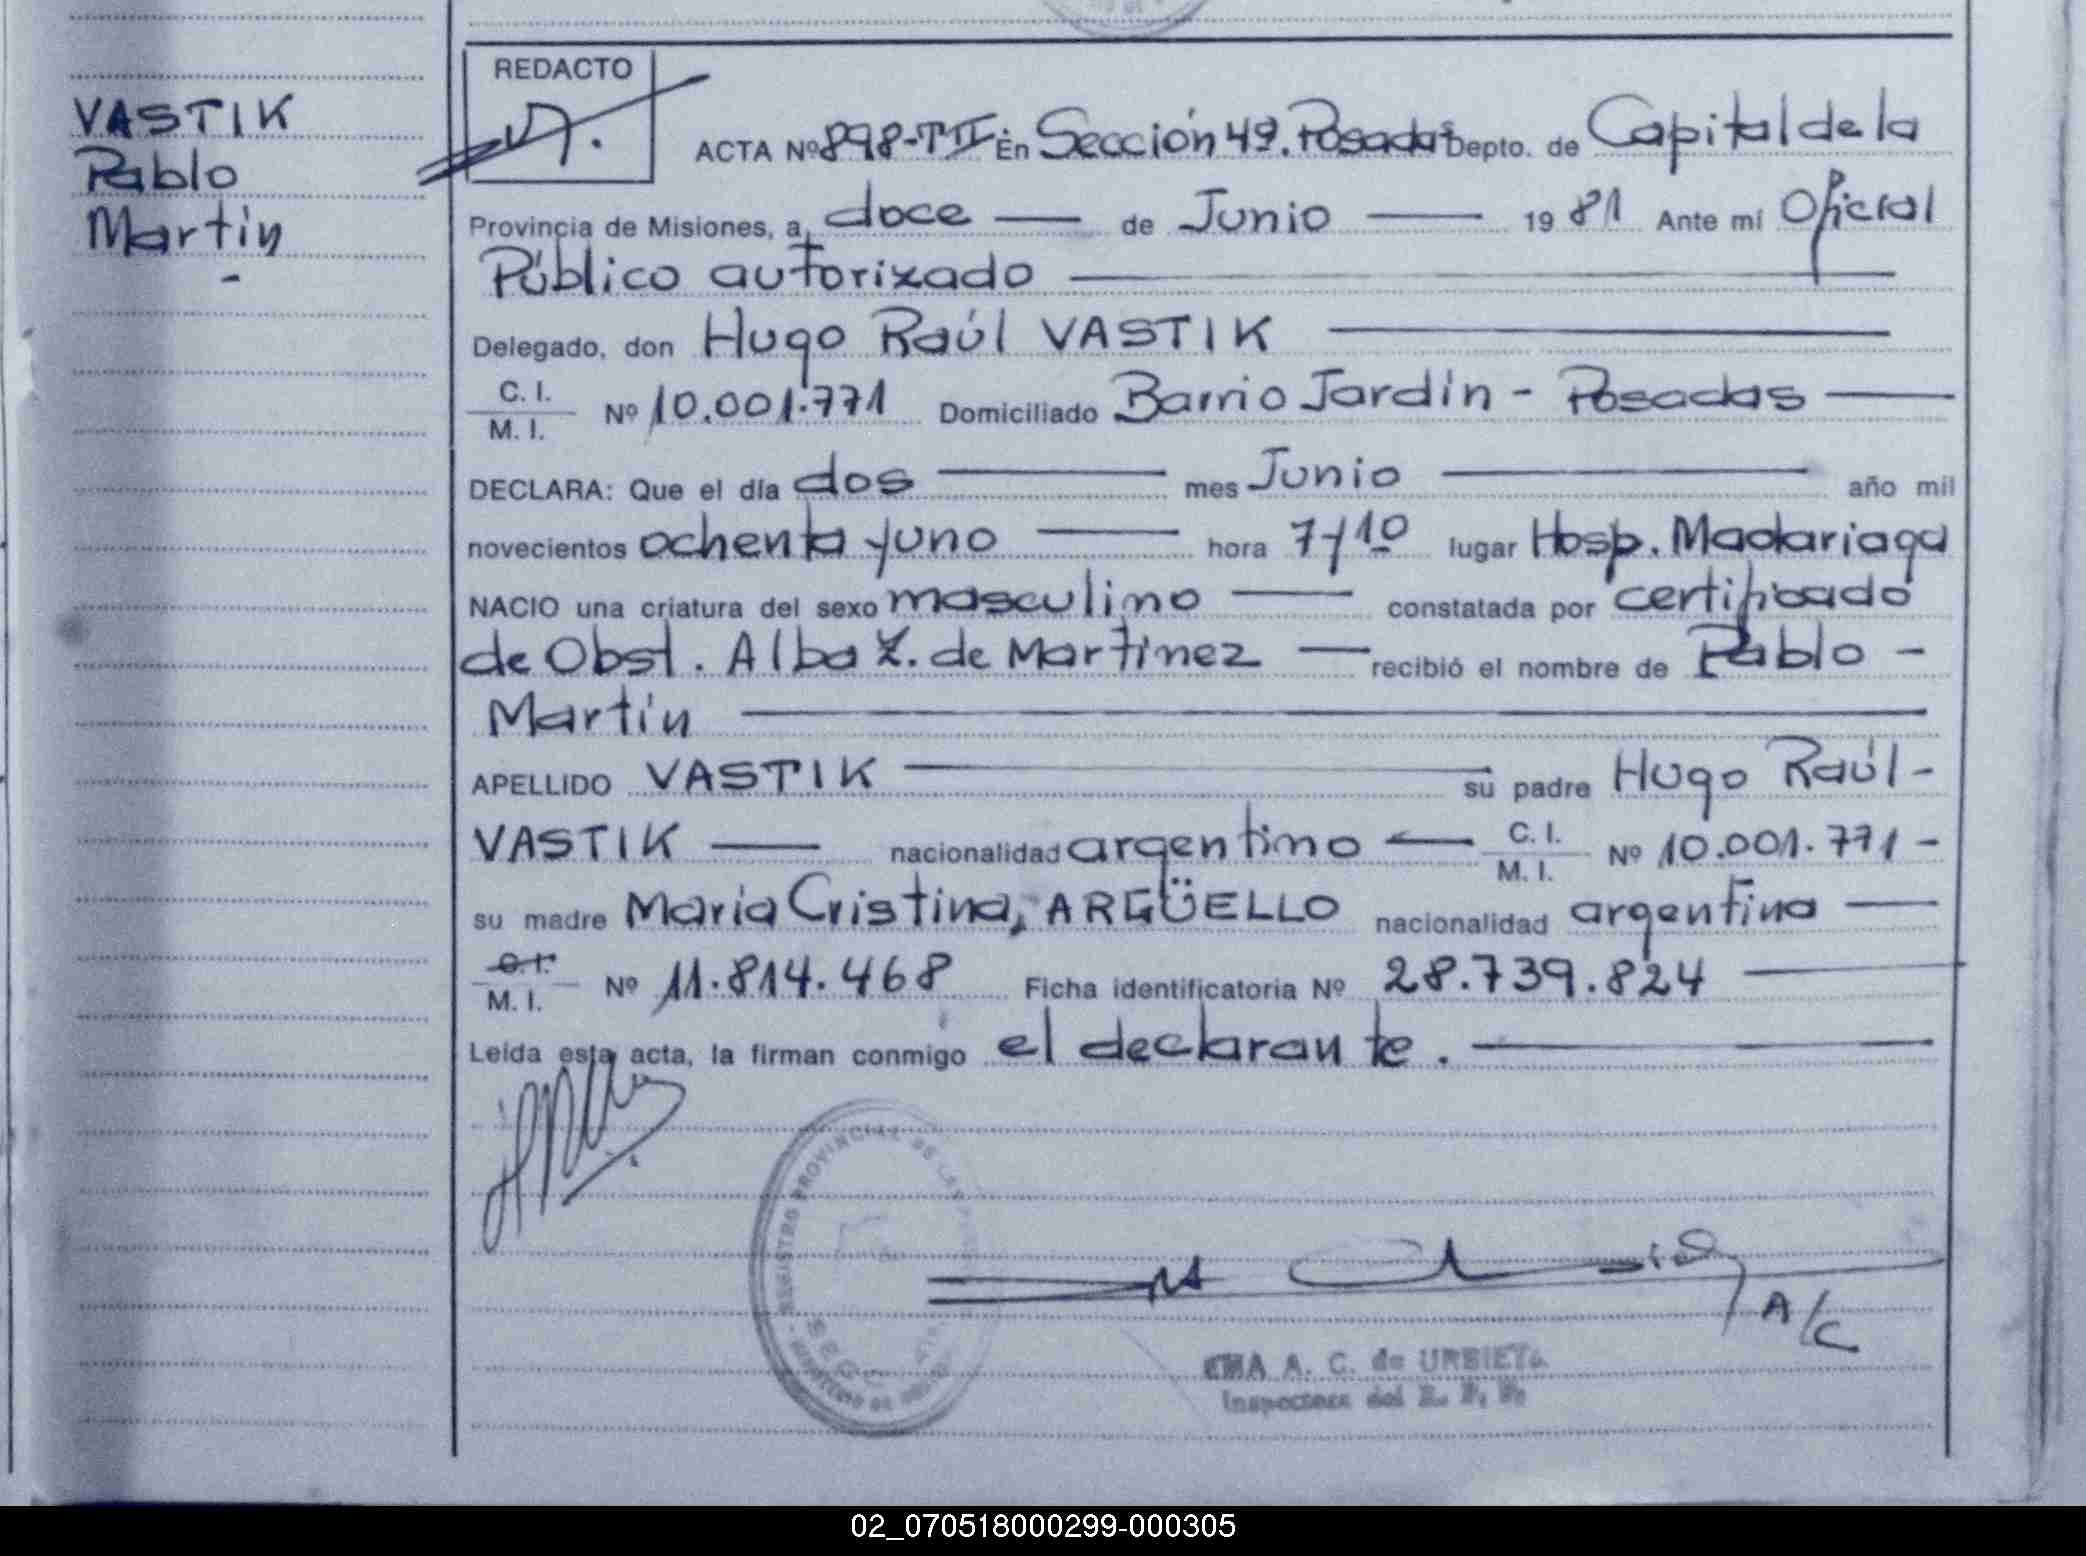 VASTIK
Pablo
Martín
-
REDACTO
ACTA Nº 898-TII En Sección 4ª. Posadas Depto. de Capital de la
Provincia de Misiones, a doce — de Junio — 19 81 Ante mí Oficial
Público autorizado —
Delegado, don Hugo Raúl VASTIK —
C. I.
M. I. Nº 10.001.771 Domiciliado Barrio Jardín - Posadas —
DECLARA: Que el día dos — mes Junio — año mil
novecientos ochenta y uno — hora 7 y 10 lugar Hosp. Madariaga
NACIO una criatura del sexo masculino — constatada por certificado
de Obst. Alba Z. de Martínez — recibió el nombre de Pablo -
Martín —
APELLIDO VASTIK — su padre Hugo Raúl -
VASTIK — nacionalidad argentino — C. I.
M. I. Nº 10.001.771 -
su madre María Cristina, ARGÜELLO nacionalidad argentina —
C. I.
M. I. Nº 11.814.468 Ficha identificatoria Nº 28.739.824 —
Leída esta acta, la firman conmigo el declarante. —
REGISTRO PROVINCIAL DE LAS
A/C
A. C. de URBIETA
Inspectora del R. P. P.
02_070518000299-000305